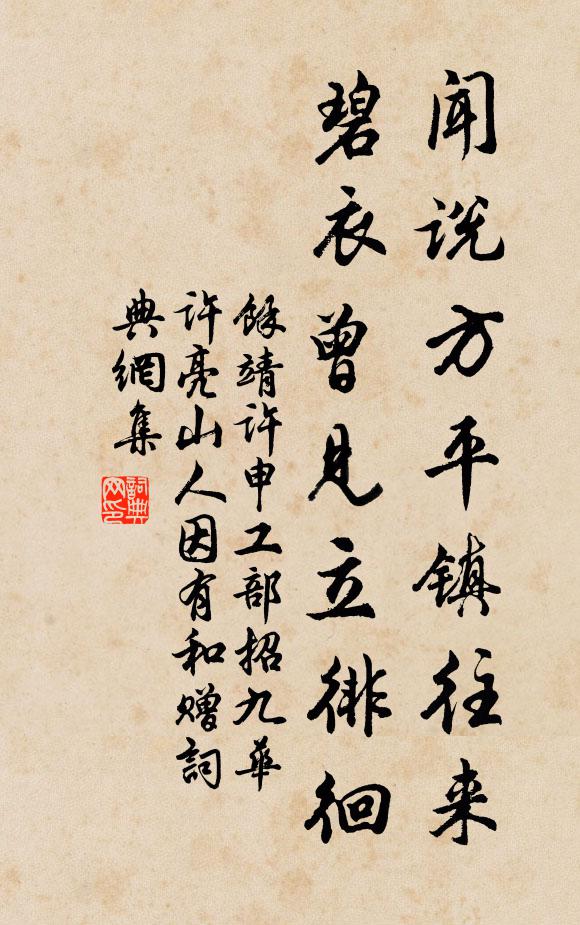 闻说方平镇往来
碧衣曾见立徘徊
馀靖许申工部招九华
许亮山人因有和赠詞
典網集
詞典网印